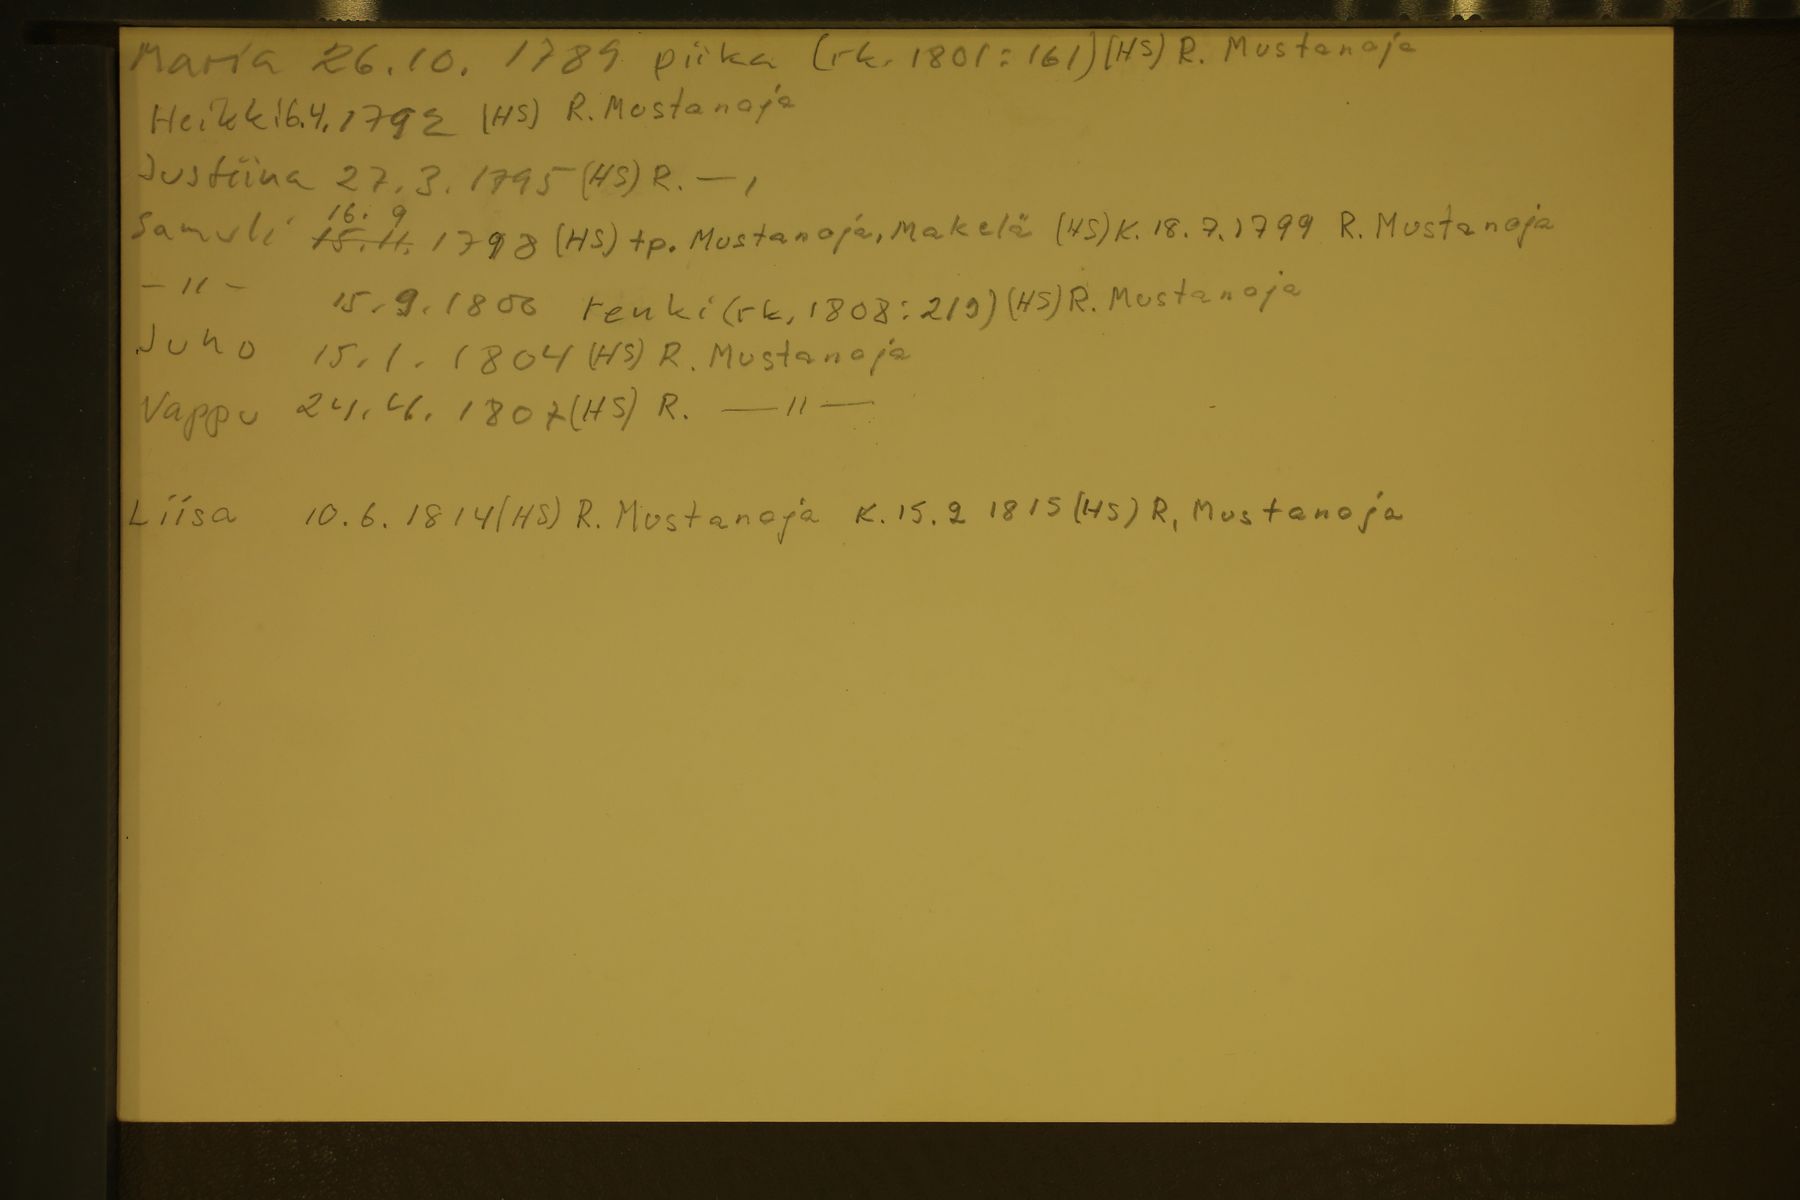 Maria 26.10. 1789 piika (rk. 1801:161)(HS) R. Mustanoja
Heikki 6.4.1792 (HS) R. Mustanoja
Justiina 27.3. 1795 (HS) R. — ,
16. 9
Samuli 15.11. 1798 (HS) tp. Mustanoja, Makelä (HS) K. 18.7.1799 R. Mustanoja
- " - 15.9.1800 renki (rk. 1808:219)(HS) R. Mustanoja
Juho 15.1. 1804 (HS) R. Mustanoja
Vappu 24.4. 1807 (HS) R. — " —
Liisa 10.6. 1814 (HS) R. Mustanoja K. 15.2 1815 (HS) R, Mustanoja